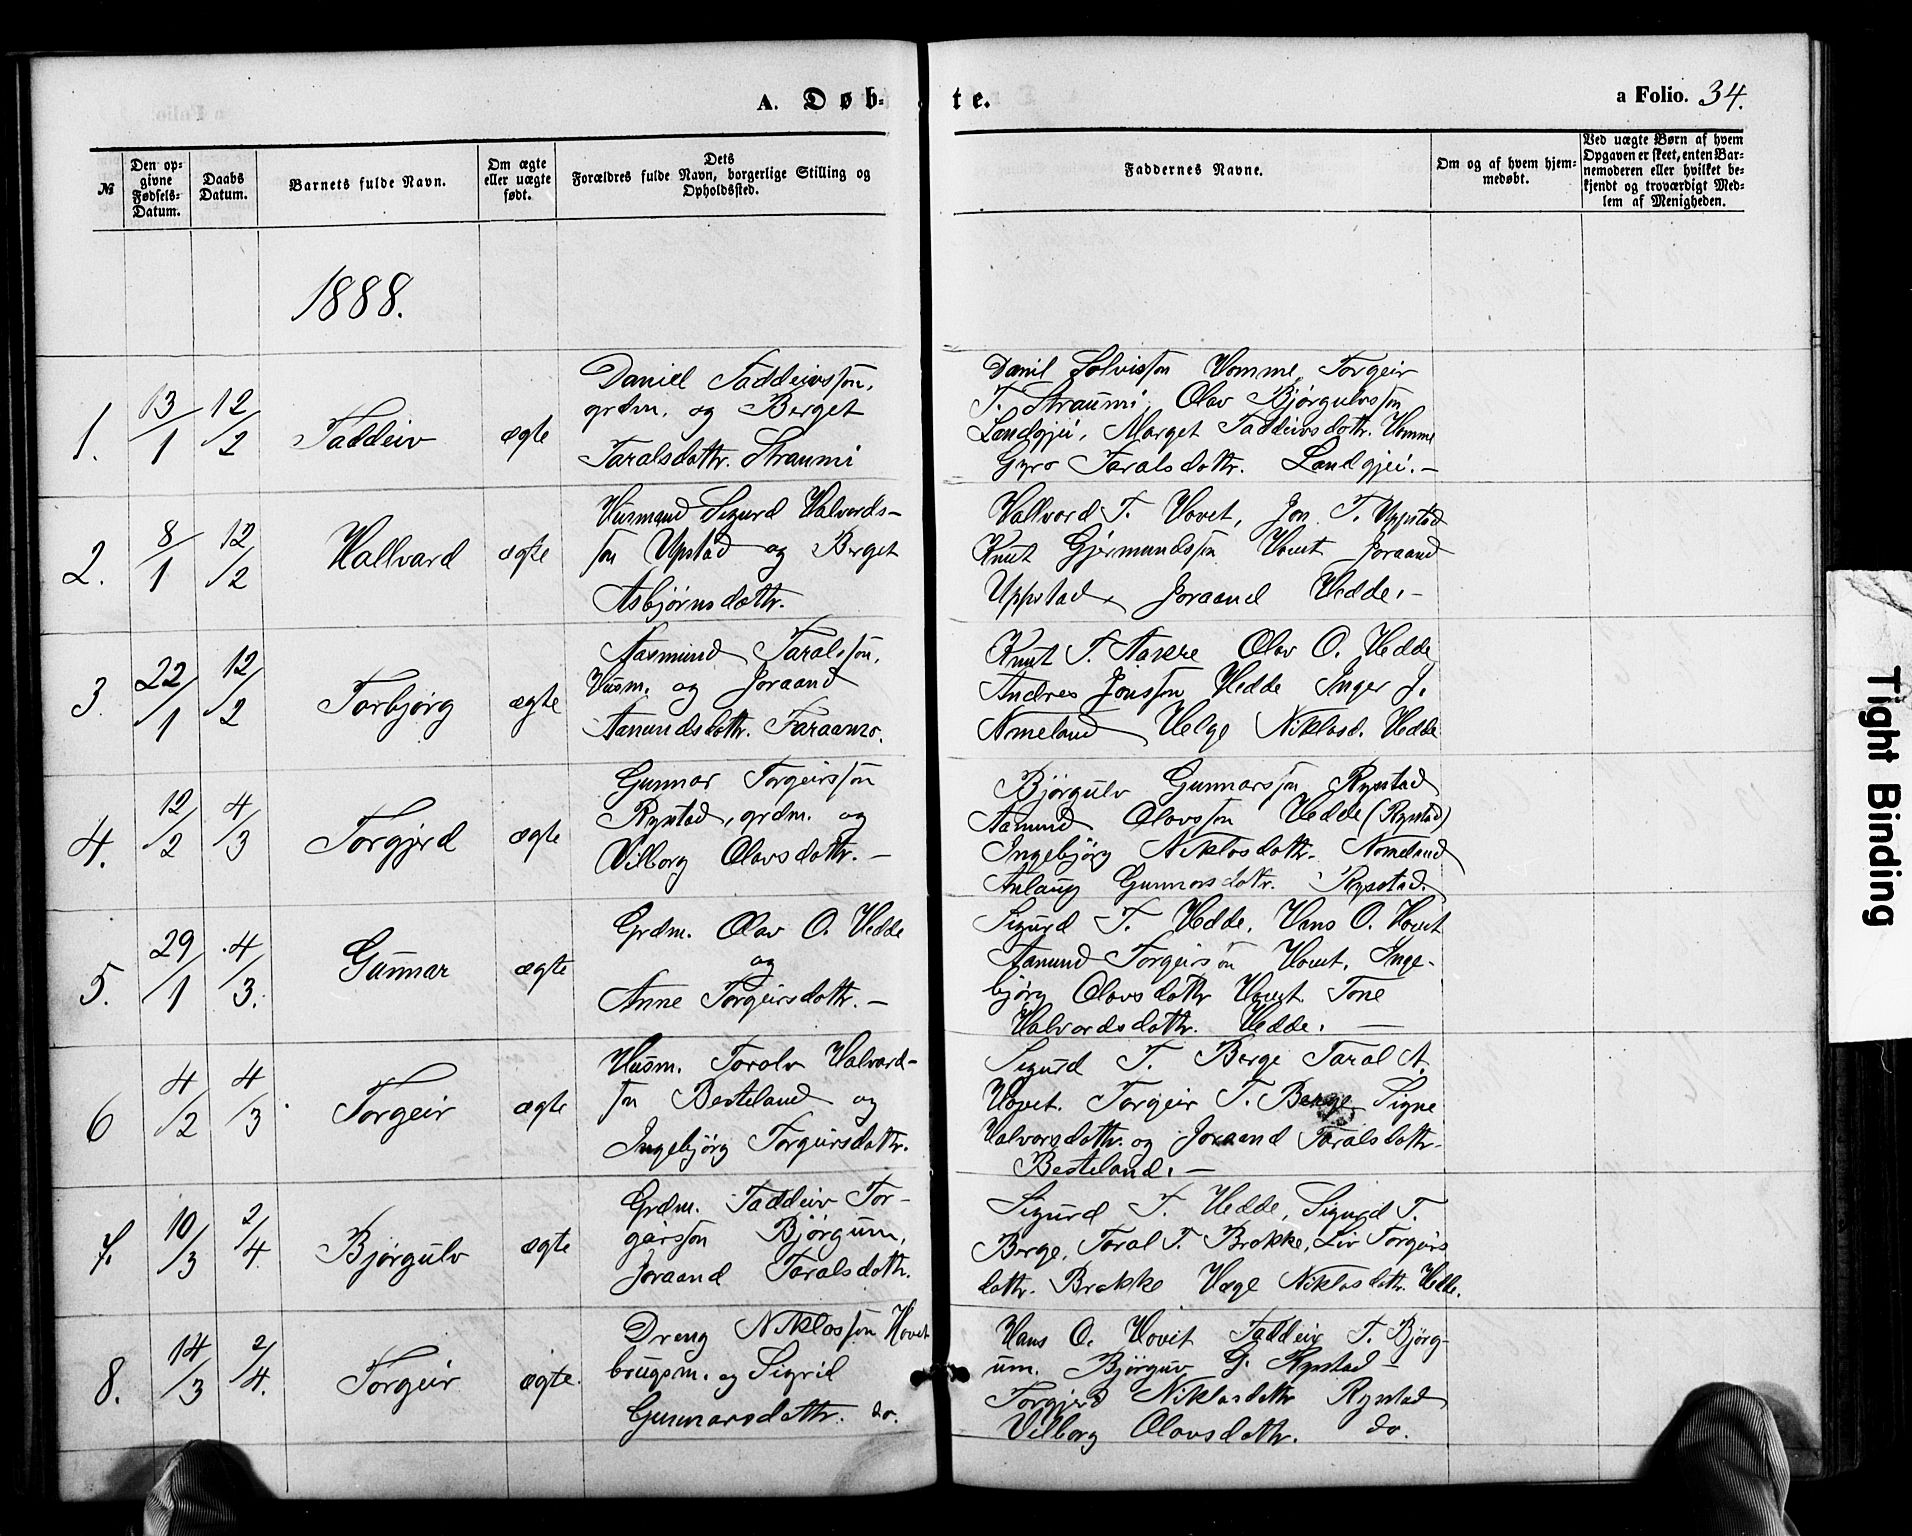 A. Døbte.
a Folio. 34.
№
Den opgivne Fødsels-Datum.
Daabs Datum.
Barnets fulde Navn.
Om ægte eller uægte født.
Dets Forældres fulde Navn, borgerlige Stilling og Opholdssted.
Faddernes Navne.
Om og af hvem hjemmedøbt.
Ved uægte Børn af hvem Opgaven er skeet, enten Barnemoderen eller hvilket bekjendt og troværdigt Medlem af Menigheden.
1888.
1. 13/1 12/2 Taddeiv ægte
Daniel Taddeivsson,
grdm. og Berget
Taralsdottr. Straumi
Danil Solvisson Homme, Torgeir
T. Straumi, Olav Bjørgulvsson
Landgjei, Marget Taddeivsdottr. Homme
Gyro Taralsdottr. Landgjei. –
2. 8/1 12/2 Hallvard ægte
Husmand Sigurd Halvords-
son Upstad og Berget
Asbjørnsdottr.
Hallvord T. Hovet, Jon T. Uppstad
Knut Gjermundsson Hovet Joraand
Uppstad, Joraand Hedde. –
3. 22/1 12/2 Torbjørg ægte
Aasmund Taralsson,
Husm. og Joraand
Aanundsdottr. Faraamo.
Knut T. Aakre Olav O. Hedde
Andres Jonsson Hedde Inger J.
Nomeland Helge Niklosd. Hedde
4. 12/2 4/3 Torgjerd ægte
Gunnar Torgeirsson
Rystad, grdm. og
Vilborg Olavsdottr. –
Bjørgulv Gunnarsson Rystad
Aanund Olavsson Hedde (Rystad)
Ingebjørg Niklosdottr. Nomeland
Aslaug Gunnarsdottr. Rystad.
5. 29/1 4/3. Gunnar ægte
Grdm. Olav O. Hedde
og
Anne Torgeirsdottr. –
Sigurd T. Hedde, Hans O. Hovet
Aanund Torgeirson Hovet, Inge-
bjørg Olavsdottr Hovet Tone
Halvordsdottr. Hedde. –
6 4/2 4/3 Torgeir ægte
Husm. Torolv Halvard-
son Besteland og
Ingebjørg Torgeirsdottr.
Sigurd T. Berge Taral A.
Hovet. Torgeir T. Berge Signe
Halvorsdottr. og Joraand Taralsdottr.
Besteland. –
7. 10/3 2/4 Bjørgulv ægte
Grdm. Taddeiv Tor-
geirsson Bjørgum,
Joraand Taralsdottr.
Sigurd T. Hedde, Sigurd T.
Berge, Toral T. Brokke, Liv Torgeirs
dottr. Brokke Hæge Niklosdottr. Hedde.
8. 14/3 2/4. Torgeir ægte.
Dreng Niklosson Hovet
brugsm. og Sigrid
Gunnarsdottr. do.
Hans O. Hovet Taddeiv T. Bjørg-
um. Bjørguv G. Rystad –
Torgjerd Niklosdottr Rystad
Vilborg Olavsdottr. do.
Tight Binding